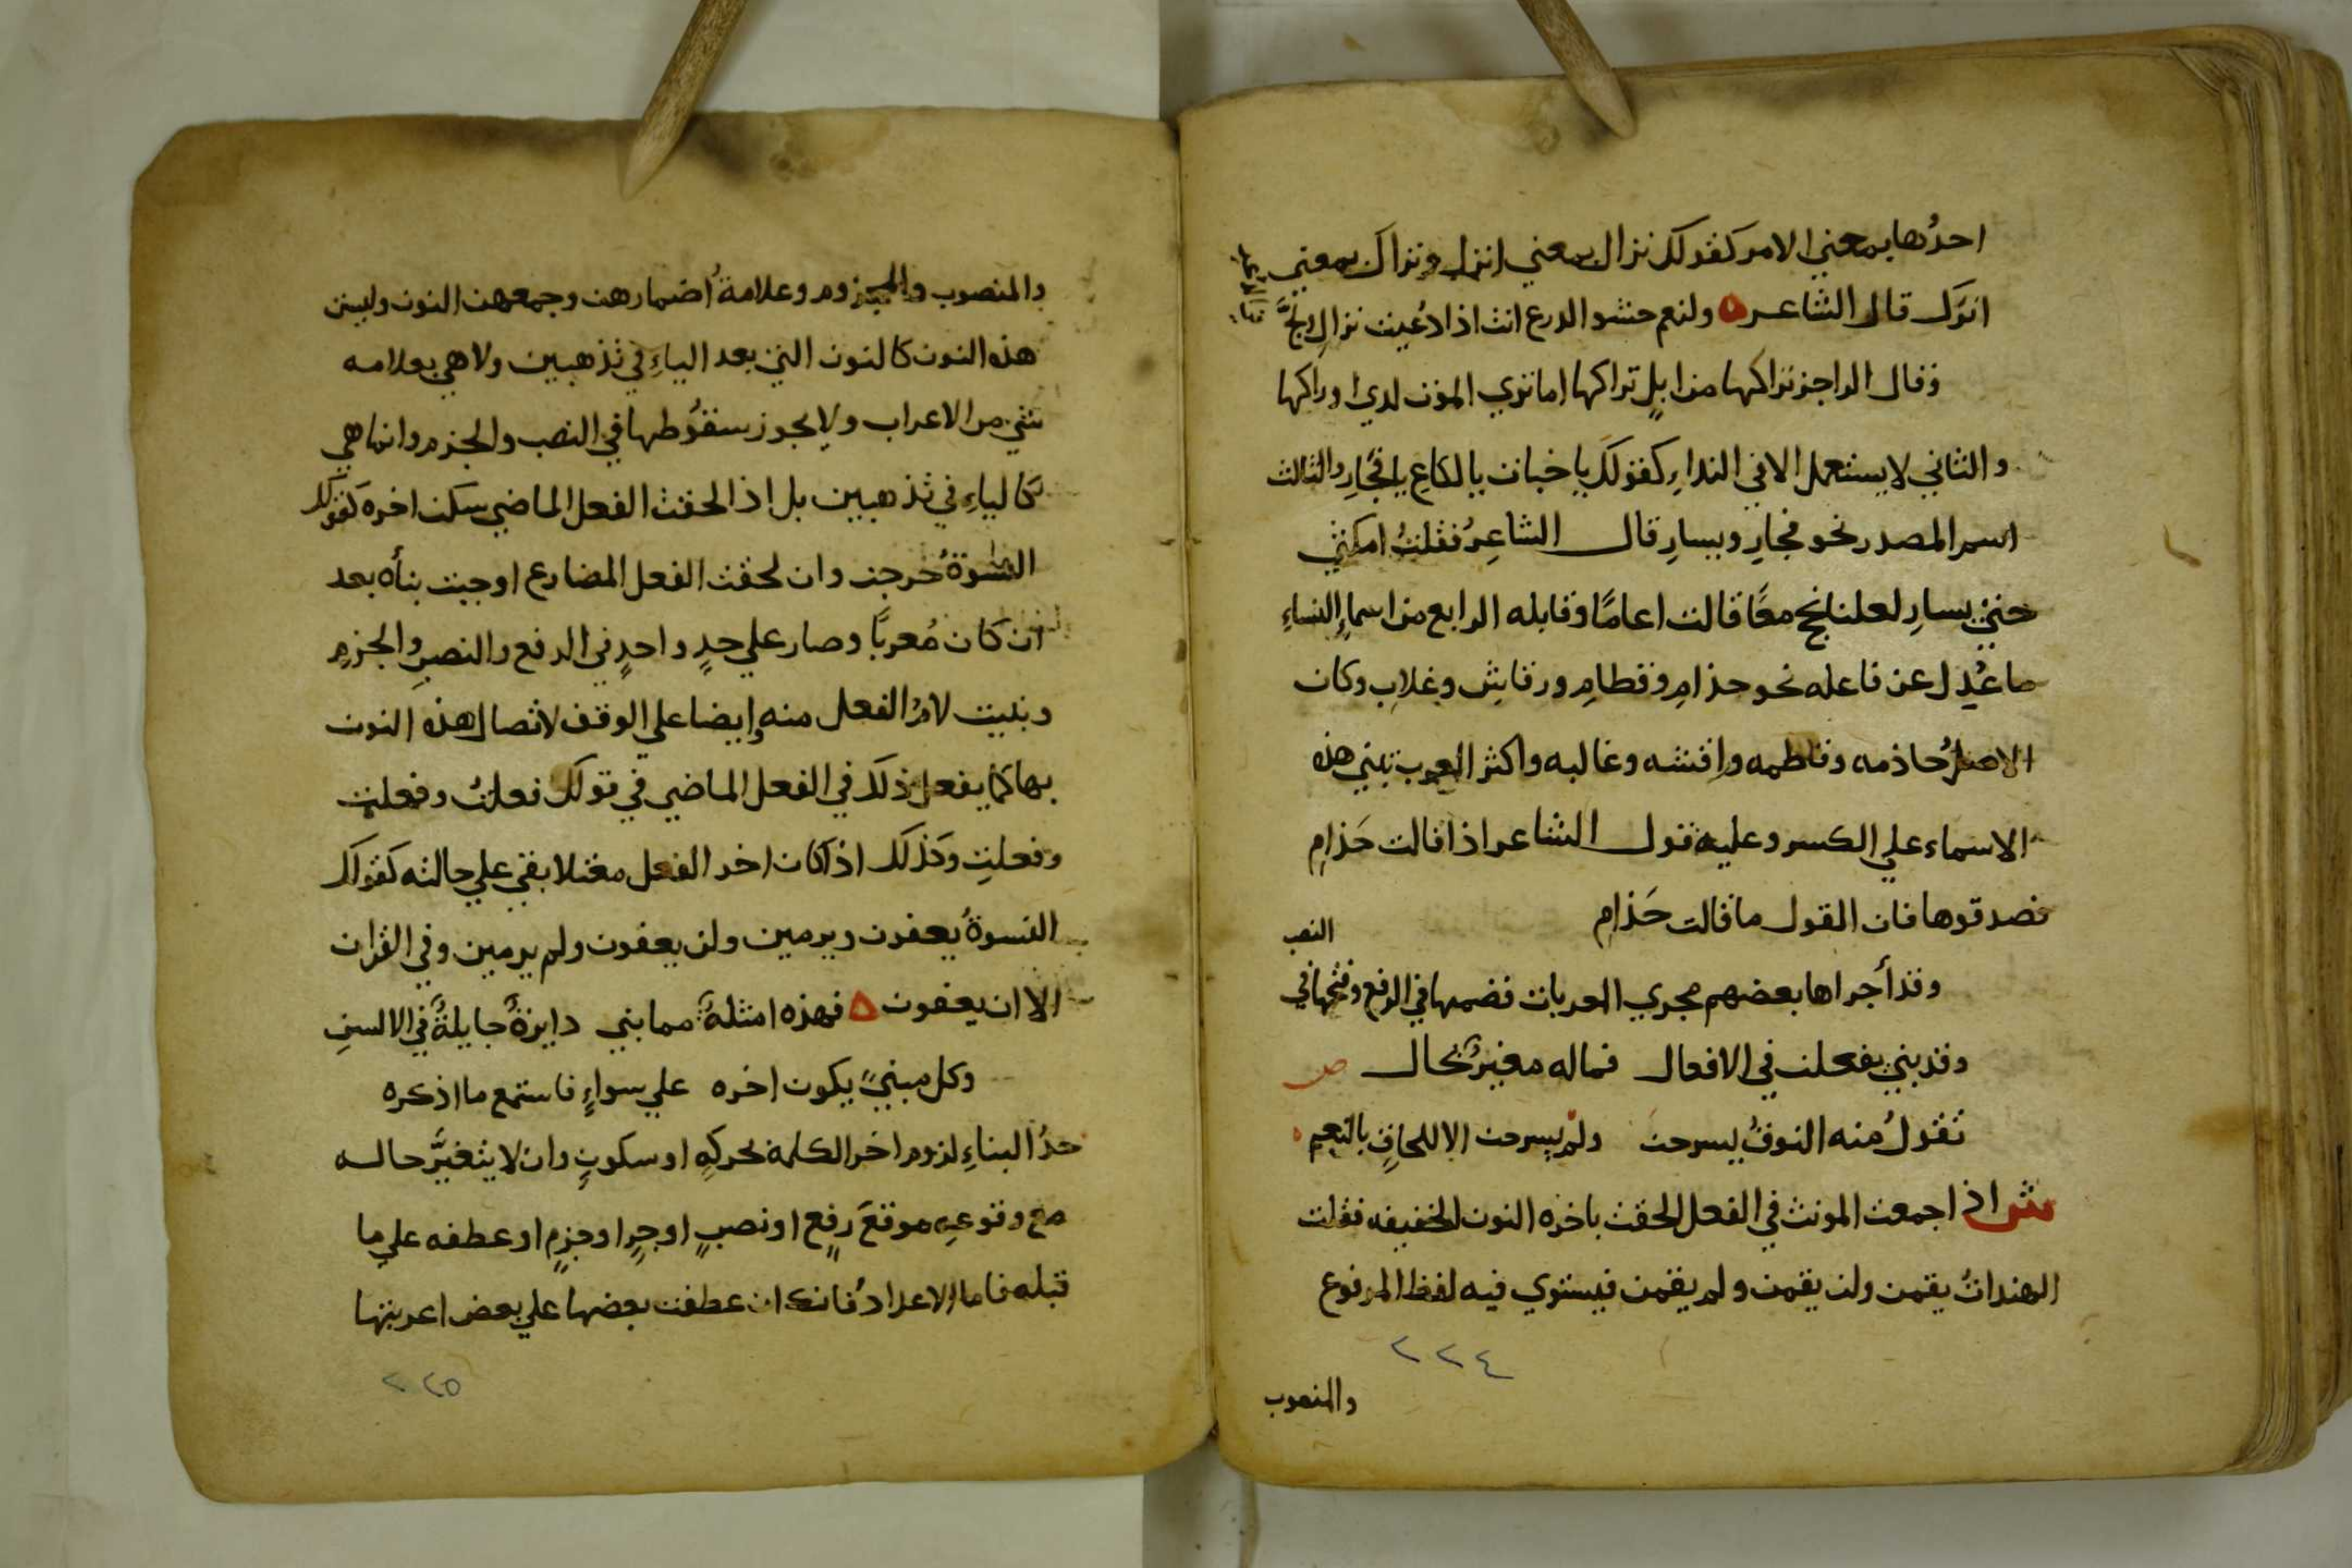 احدُها بمعني الامر كقولك نزال بمعني انزل وتراك بمعني
اترك قال الشاعر ولنعم حشو الدرع انت اذا دُعيت نزالِ ولجَّ
وقال الراجز تراكها من ابلٍ تراكها اما تري الموت لدي اوراكها
والثاني لا يستعمل الا في النداءِ كقولكَ يا خباث يا لكاعِ يا فجارِ والثالث
اسم المصدر نحو فجارِ ويسارِ قال الشاعِرُ فقلتُ امكثي
حتيْ يسارِ لعلنا نحج معًا قالت اعامًا وقابله الرابع من اسماءِ النساءِ
ما عُدِل عن فاعله نحو حذامِ وقطامِ ورقاشِ وغلابِ وكان
الاصلُ حاذمه وقاطمه وراقشه وغالبه واكثر العرب تبني هذه
الاسماء علي الكسر وعليه قول الشاعر اذا قالت حَذامِ
فصدقوها فان القول ما قالت حَذامِ
النصب
وقد أجراها بعضهم مجري المعربات فضمها في الرفع وفتحها في
وقد بني يفعلن في الافعال فماله مغيرٌ بحال ص
تقولُ منه النوقُ يسرحن ولم يسرحن الا للحاقِ بالنعم
ش اذا جمعت المونث في الفعل الحقت باخره النون الخفيفه فقلت
الهنداتُ يقمن ولن يقمن ولم يقمن فيستوي فيه لفظ المرفوع
٢٢٤
والمنصوب
والمنصوب والمجزوم وعلامةُ اضمارهن وجمعهن النون وليس
هذه النون كالنون التي بعد الياءِ في تذهبين ولا هي بعلامه
شي من الاعراب ولا يجوز سقوُطها في النصب والجزم وانما هي
كالياءِ في تذهبين بل اذا لحقت الفعل الماضي سكن اخره كقولك
النسوةُ خرجن وان لحقت الفعل المضارع اوجبت بنأه بعد
ان كان مُعربًا وصار علي حدٍ واحدٍ في الرفع والنصبِ والجزمِ
وبنيت لامُ الفعل منه ايضا علي الوقف لاتصال هذه النون
بها كما يفعل ذلك في الفعل الماضي في قولك فعلتُ وفعلتَ
وفعلتِ وكذلك اذا كان اخر الفعل معتلا بقي علي حالته كقولك
النسوةُ يعفون ويرمين ولن يعفون ولم يرمين وفي القرآن
الا ان يعفون فهذه امثلةٌ مما بني دايرةٌ جايلةٌ في الالسنِ
وكل مبنيٍّ يكون اخره علي سواءٍ فاستمع ما اذكره
حدُ البناءِ لزوم اخر الكلمة لحركهٍ او سكونٍ وان لا يتغيَّر حاله
مع وقوعهِ موقعَ رفعٍ او نصبٍ او جرٍ او جزمٍ او عطفه علي ما
قبله فاما الاعدادُ فانك ان عطفت بعضها علي بعض اعربتها
٢٢٥